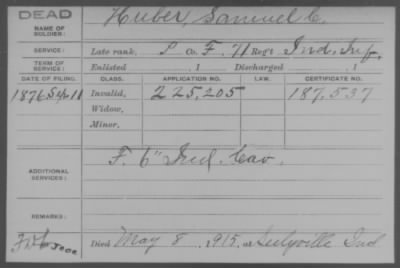 DEAD
NAME OF SOLDIER: Huber, Samuel C.
SERVICE: Late rank, P Co. F, 71 Reg't Ind. Inf.
TERM OF SERVICE: Enlisted 1 Discharged 1
DATE OF FILING. CLASS. APPLICATION NO. LAW. CERTIFICATE NO.
1876 Sep 11 Invalid, 225,205 187,537
Widow,
Minor,
ADDITIONAL SERVICES: F. 6" Ind. Cav.
REMARKS:
Died May 8, 1915, at Lulyville Ind